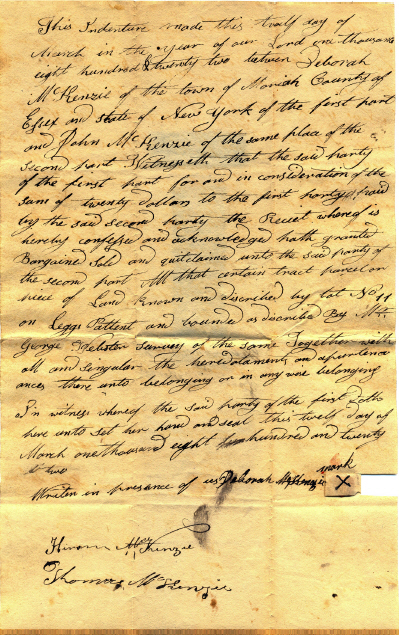 This Indenture made this twelf day of
March in the Year of our Lord one thousand
eight hundred & twenty two between Deborah
McKenzie of the town of Moriah County of
Essex and state of New York of the first part
and John McKenzie of the same place of the
second part Witnesseth that the said party
of the first part for and in consideration of the
sum of twenty Dollars to the first party paid
by the said second party the Reciet whereof is
hereby confessed and acknowledged hath granted
Bargaine Sold and quitclaimed unto the said party of
the second part All that certain tract parcel or
piece of Land Known and discribed by lot No 11
on Leggs Pattent and bounded as discribed By
George Webster survey of the same Together with
all and singular the heredotaments and apurtenance
ances there unto belonging or in any wise belonging
In witness whereof the said party of the first
here unto set her hand and seal this twelf day of
March one thousand eight hundred and twenty
two
Writen in presence of us Deborah McKenzie mark
X
Hiram McKenzie
Thomas McKenzie